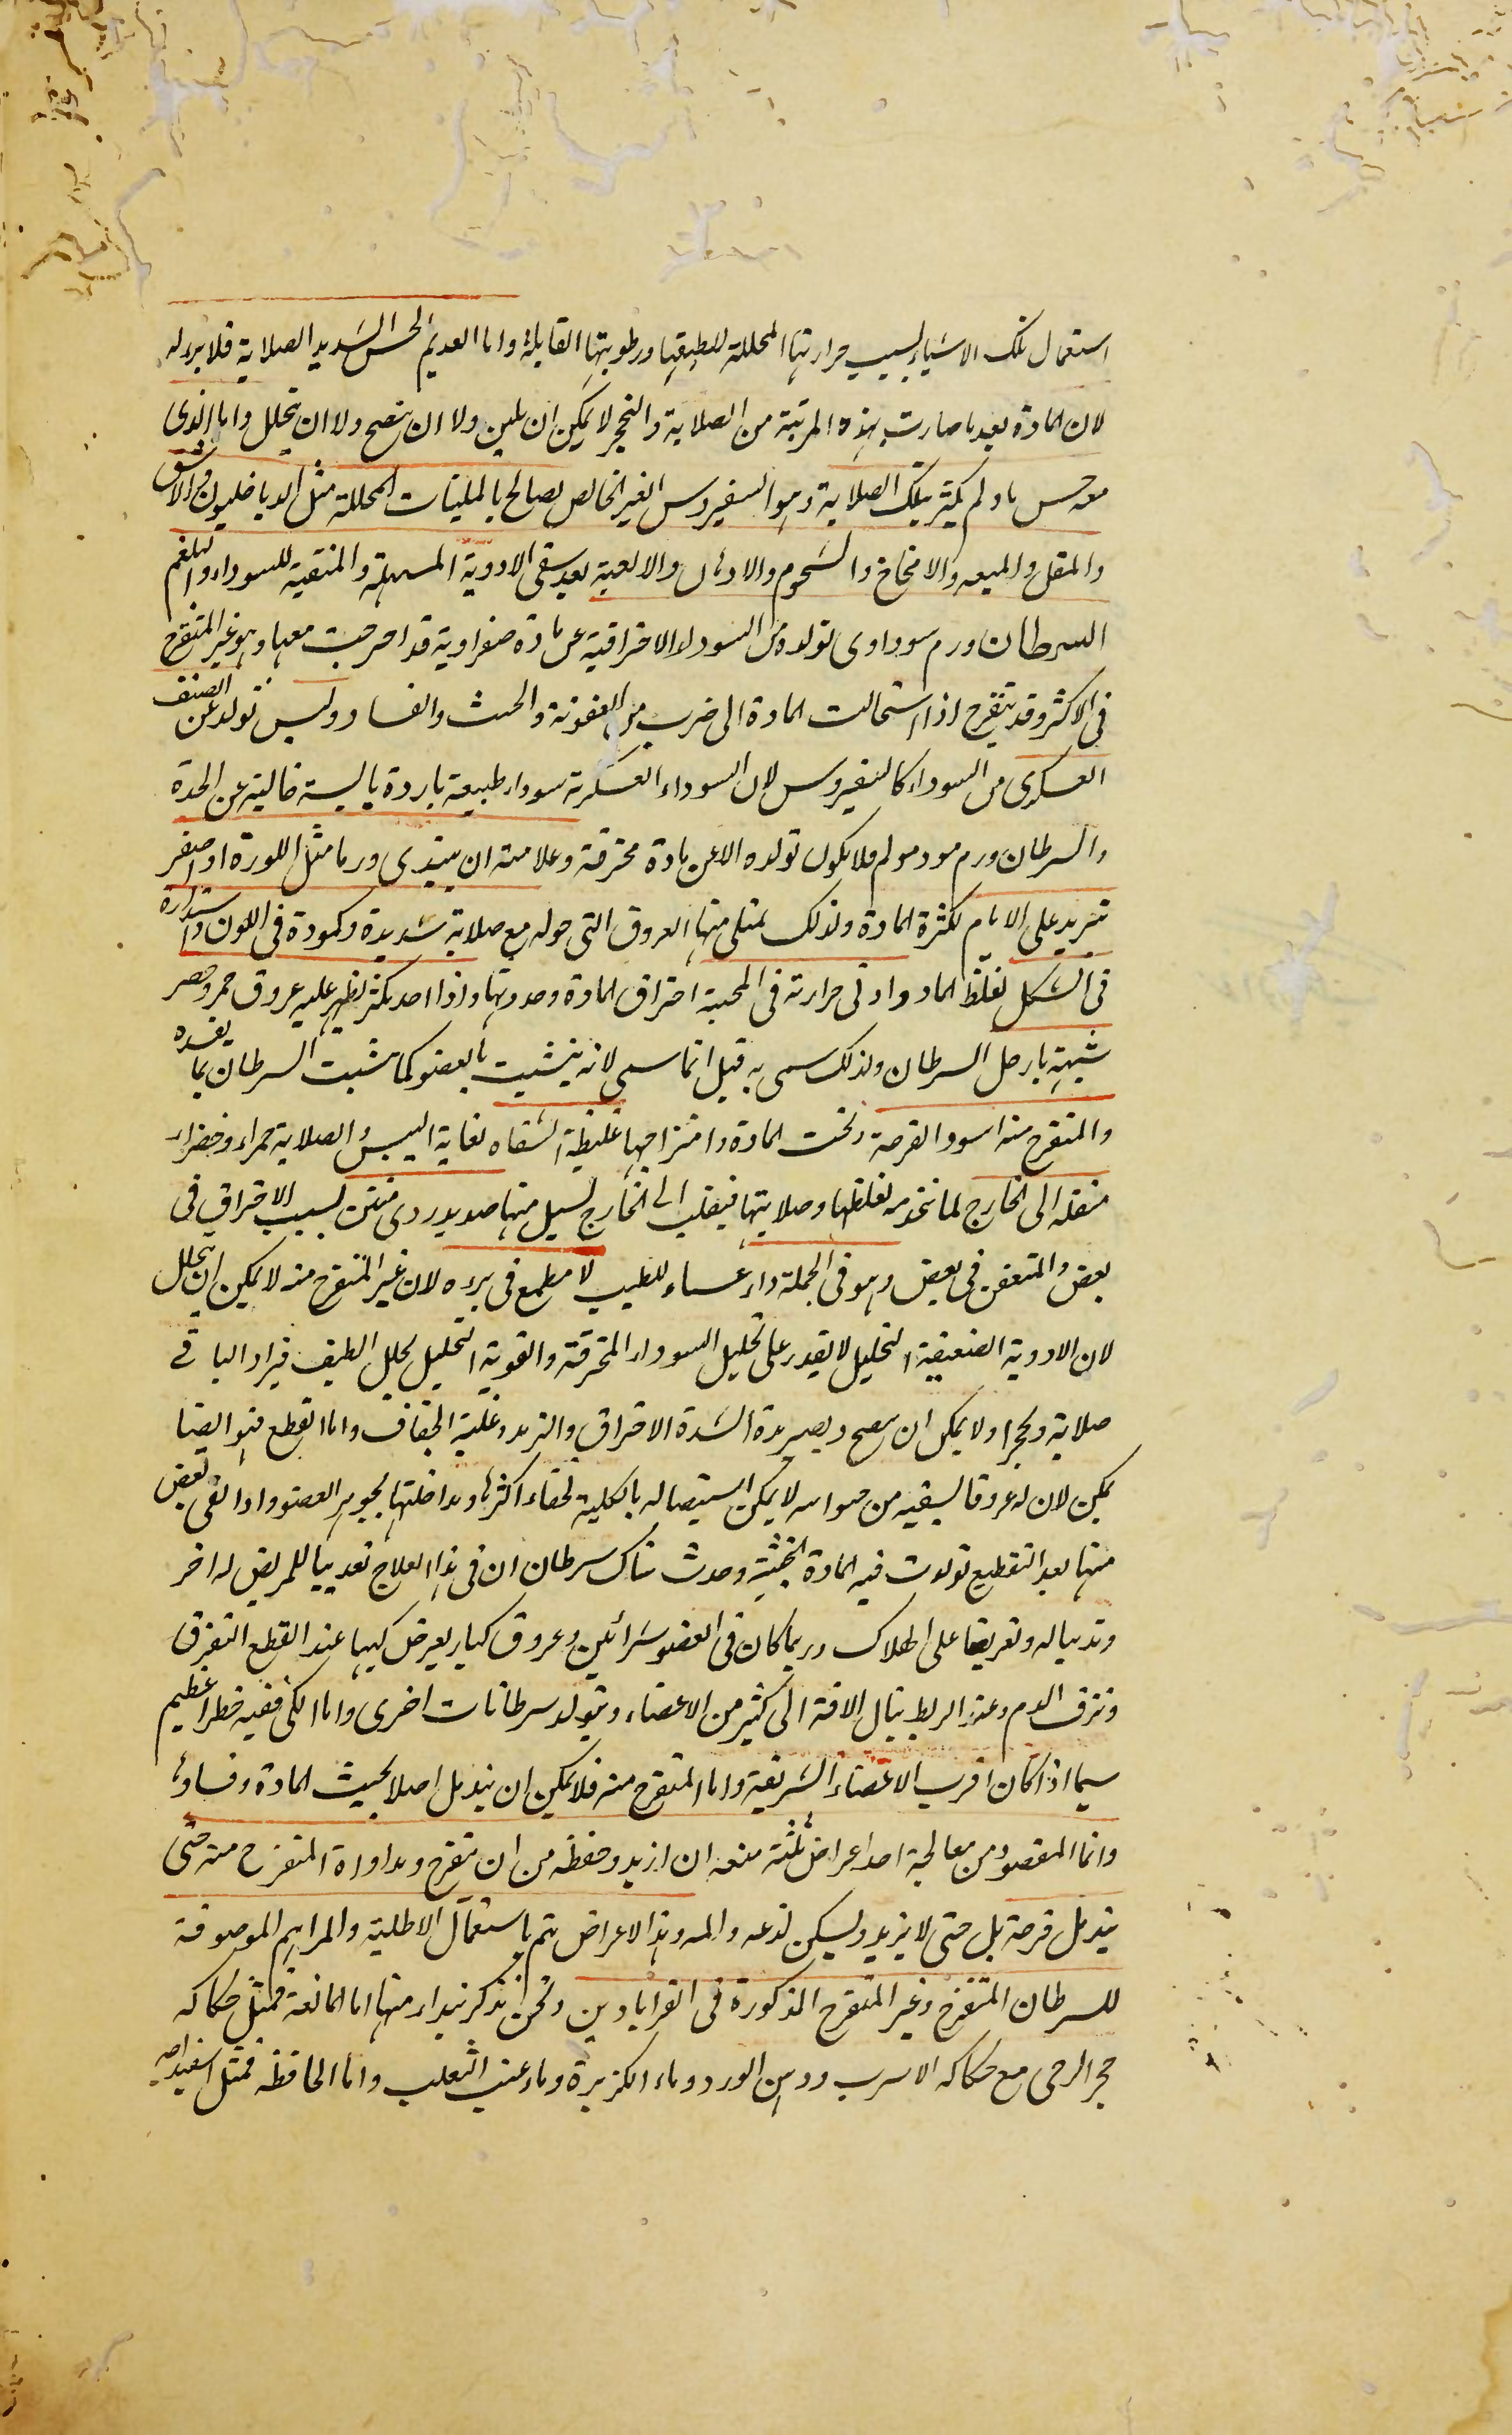 استعمال تلك الاشياء بسبب حرارتها المحللة للطيفها ورطوبتها القابلة واما العديم الحس الشديد الصلابة فلا برء له
لان المادة بعد ما صارت بهذه المرتبة من الصلابة والتحجر لا يمكن ان يلين ولا ان ينضج ولا ان يتحلل واما الذى
معه حس ما ولم يكثر تلك الصلابة وهو السفيروس الغير الخالص يعالج بالملينات المحللة مثل الدياخليون والاشق
والمقل والميعه والامخاخ والشحوم والادهان والالعبة بعد سقى الادوية المسهلة والمنقية للسوداء والبلغم
السرطان ورم سوداوى تولده من السوداء الاحتراقية عن مادة صفراوية قد احترقت معها وهو غير المتقرح
فى الاكثر وقد يتقرح اذا استحالت المادة الى ضرب من العفونة والخبث والفساد وليس تولده عن الصنف
العسكرى من السوداء كالسفيروس لان السوداء العسكرية سوداء طبيعة باردة يابسة خالية عن الحدة
والسرطان ورم موذ مولم فلا يكون تولده الا عن مادة محترقة وعلامته ان يبتدى ورما مثل اللوزة او اصغر
تتزيد على الايام لكثرة المادة ولذلك تمتلى منها العروق التى حوله مع صلابة شديدة وكمودة فى اللون واستدارة
فى الشكل لغلظ المادة وادنى حرارته فى المجسة احتراق المادة وحدتها واذا اخذ يكثر يظهر عليه عروق حمر وخضر
شبيهة بارجل السرطان ولذلك سمى به قيل انما سمى لانه يتشبث بالعضو كما يتشبث السرطان بما يصيده
والمتقرح منه اسود القرحة لخبث المادة واحتراقها غليظة الشفاه لغاية اليبس والصلابة حمراء وخضراء
منقلبه الى الخارج لما تتمدد لغلظها وصلابتها فينقلب الى الخارج يسيل منها صديد ردى منتن بسبب الاحتراق فى
بعض والتعفن فى بعض وهو فى الجملة داء عساء للطبيب لا مطمع فى برءه لان غير المتقرح منه لا يمكن ان يتحلل
لان الادوية الضعيفة التحليل لا يقدر على تحليل السوداء المحترقة والقوية التحليل يحلل الطيف فيزاد الباقى
صلابة وتحجرا ولا يمكن ان ينضج ويصير مدة لشدة الاحتراق والترمد وغلبة الجفاف واما القطع فهو ايضا
يمكن لان له عروقا يسقيه من حواليه لا يمكن استيصاله بالكلية لخفاء اكثرها ومداخلتها لجوهر العضو واذا بقى بعض
منها بعد التقطيع تولدت فيه المادة الخبيثة وحدث هناك سرطان ان فى هذا العلاج تعذيبا للمريض له اخر
وتدبيا له وتعريضا على الهلاك وربما كان فى العضو شرائين وعروق كبار يعرض لها عند القطع التفرق
ونزف الدم وعند الربط ينال الافة الى كثير من الاعضاء وتتولد سرطانات اخرى واما الكى ففيه خطر عظيم
سيما اذا كان اقرب الاعضاء الشريفة واما المتقرح منه فلا يمكن ان يندمل اصلا لخبث المادة وفسادها
وانما المقصود من معالجة احد اعراض ثلثة منعه ان ازيد وحفظه من ان يتقرح ومداواة المتقرح منه حتى
يندمل قرحة بل حتى لا يزيد ويسكن لذعه والمه وهذه الاعراض يتم باستعمال الاطلية والمراهم الموصوفة
للسرطان المتقرح وغير المتقرح المذكورة فى القراباذين ونحن نذكر نبذا منها اما المانعة فمثل حكاكه
حجر الرحى مع حكاكه الاسرب ودهن الورد وماء الكزبرة وماء عنب الثعلب واما الحافظه فمثل اسفيداج